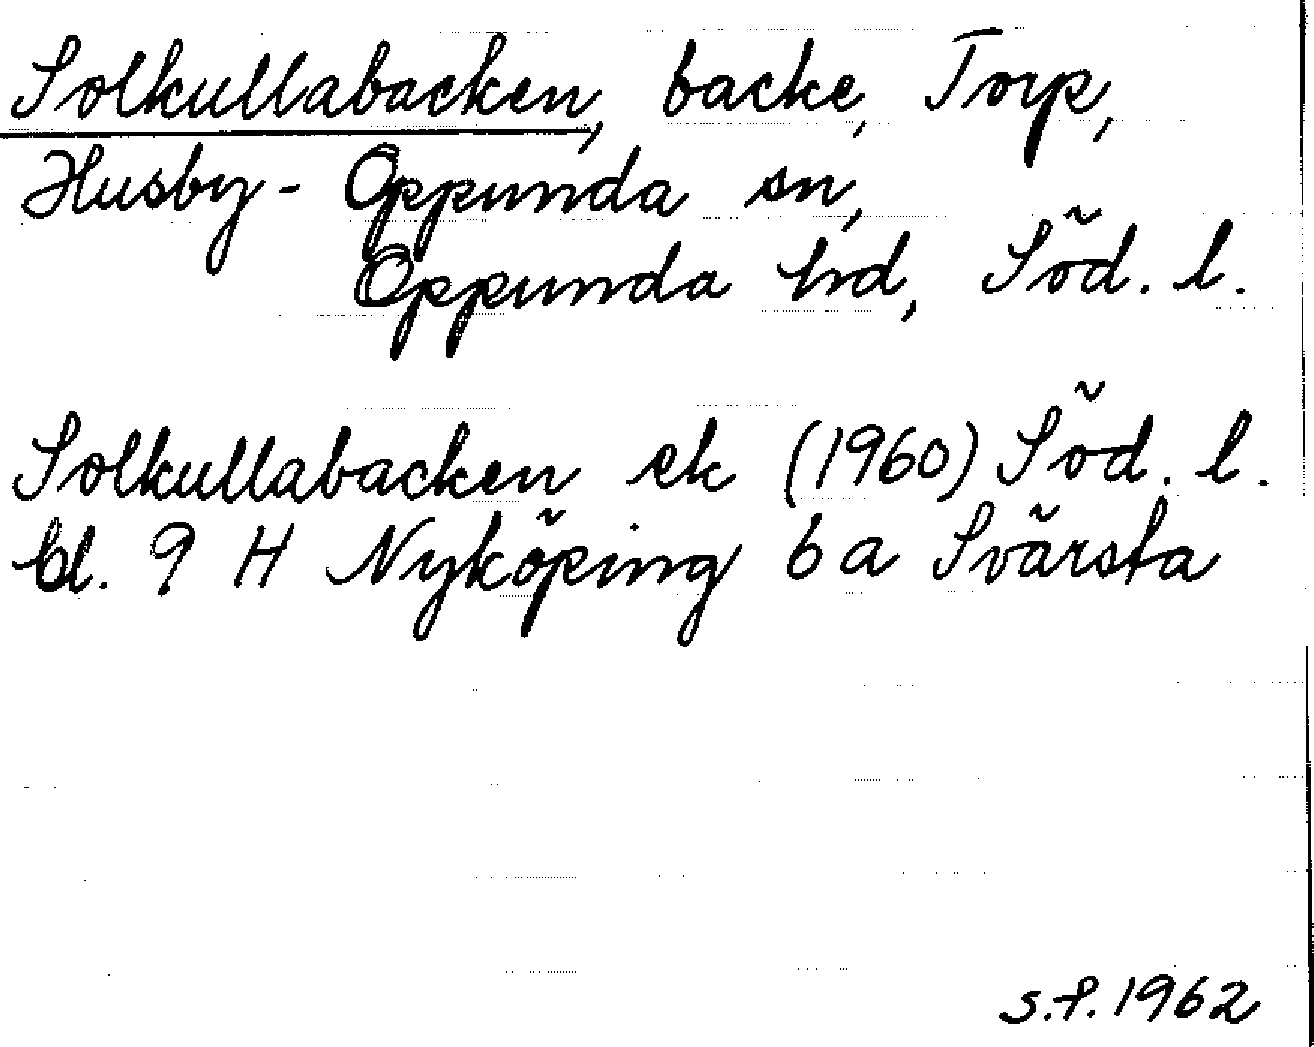 Solkullabacken, backe, Torp,
Husby-Oppunda sn,
Oppunda hd, Söd. l.
Solkullabacken ek (1960) Söd. l.
bl. 9 H Nyköping 6 a Svärsta
s.f. 1962